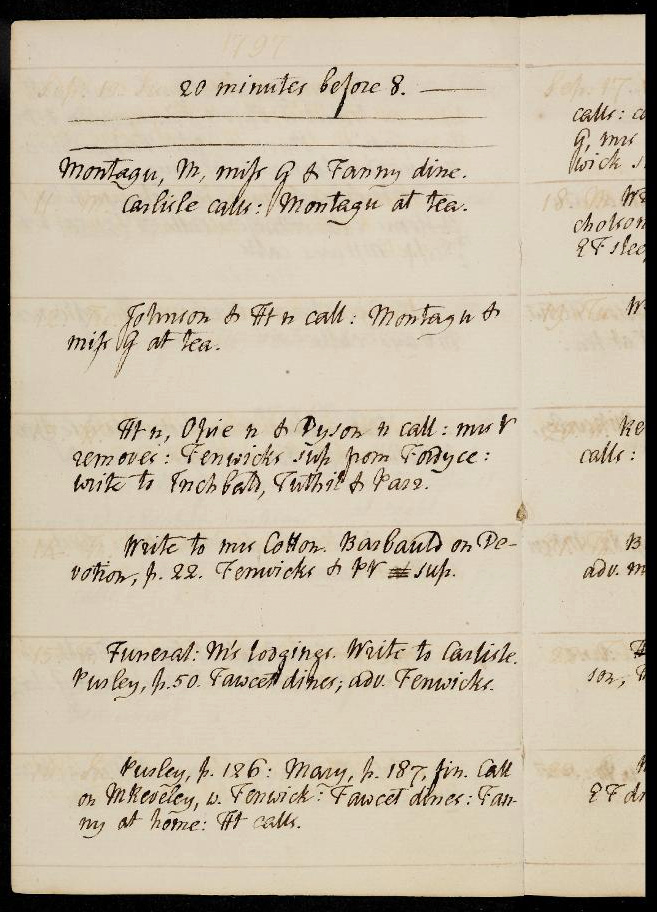 1797
20 minutes before 8.
Montagu, M, miss G & Fanny dine.
Carlisle calls: Montagu at tea.
Johnson & Ht n call: Montagu &
miss G at tea.
Ht n, Opie n & Dyson n call: mrs V
removes: Fenwicks sup from Fordyce:
write to Inchbald, Tuthil & Parr.
Write to mrs Cotton. Barbauld on De-
votion, p. 22. Fenwicks & PV sup.
Funeral: M's lodgings. Write to Carlisle.
Pursley, p. 50. Fawcet dines; adv. Fenwicks.
Pursley, p. 126: Mary, p. 187, fin. Call
on MReveley, w. Fenwick: Fawcet dines: Fan-
ny at home: Ht calls.
Sep. 17.
calls:
G, mrs
wick
18.
E F slee
calls:
adv. m
son,
E F di